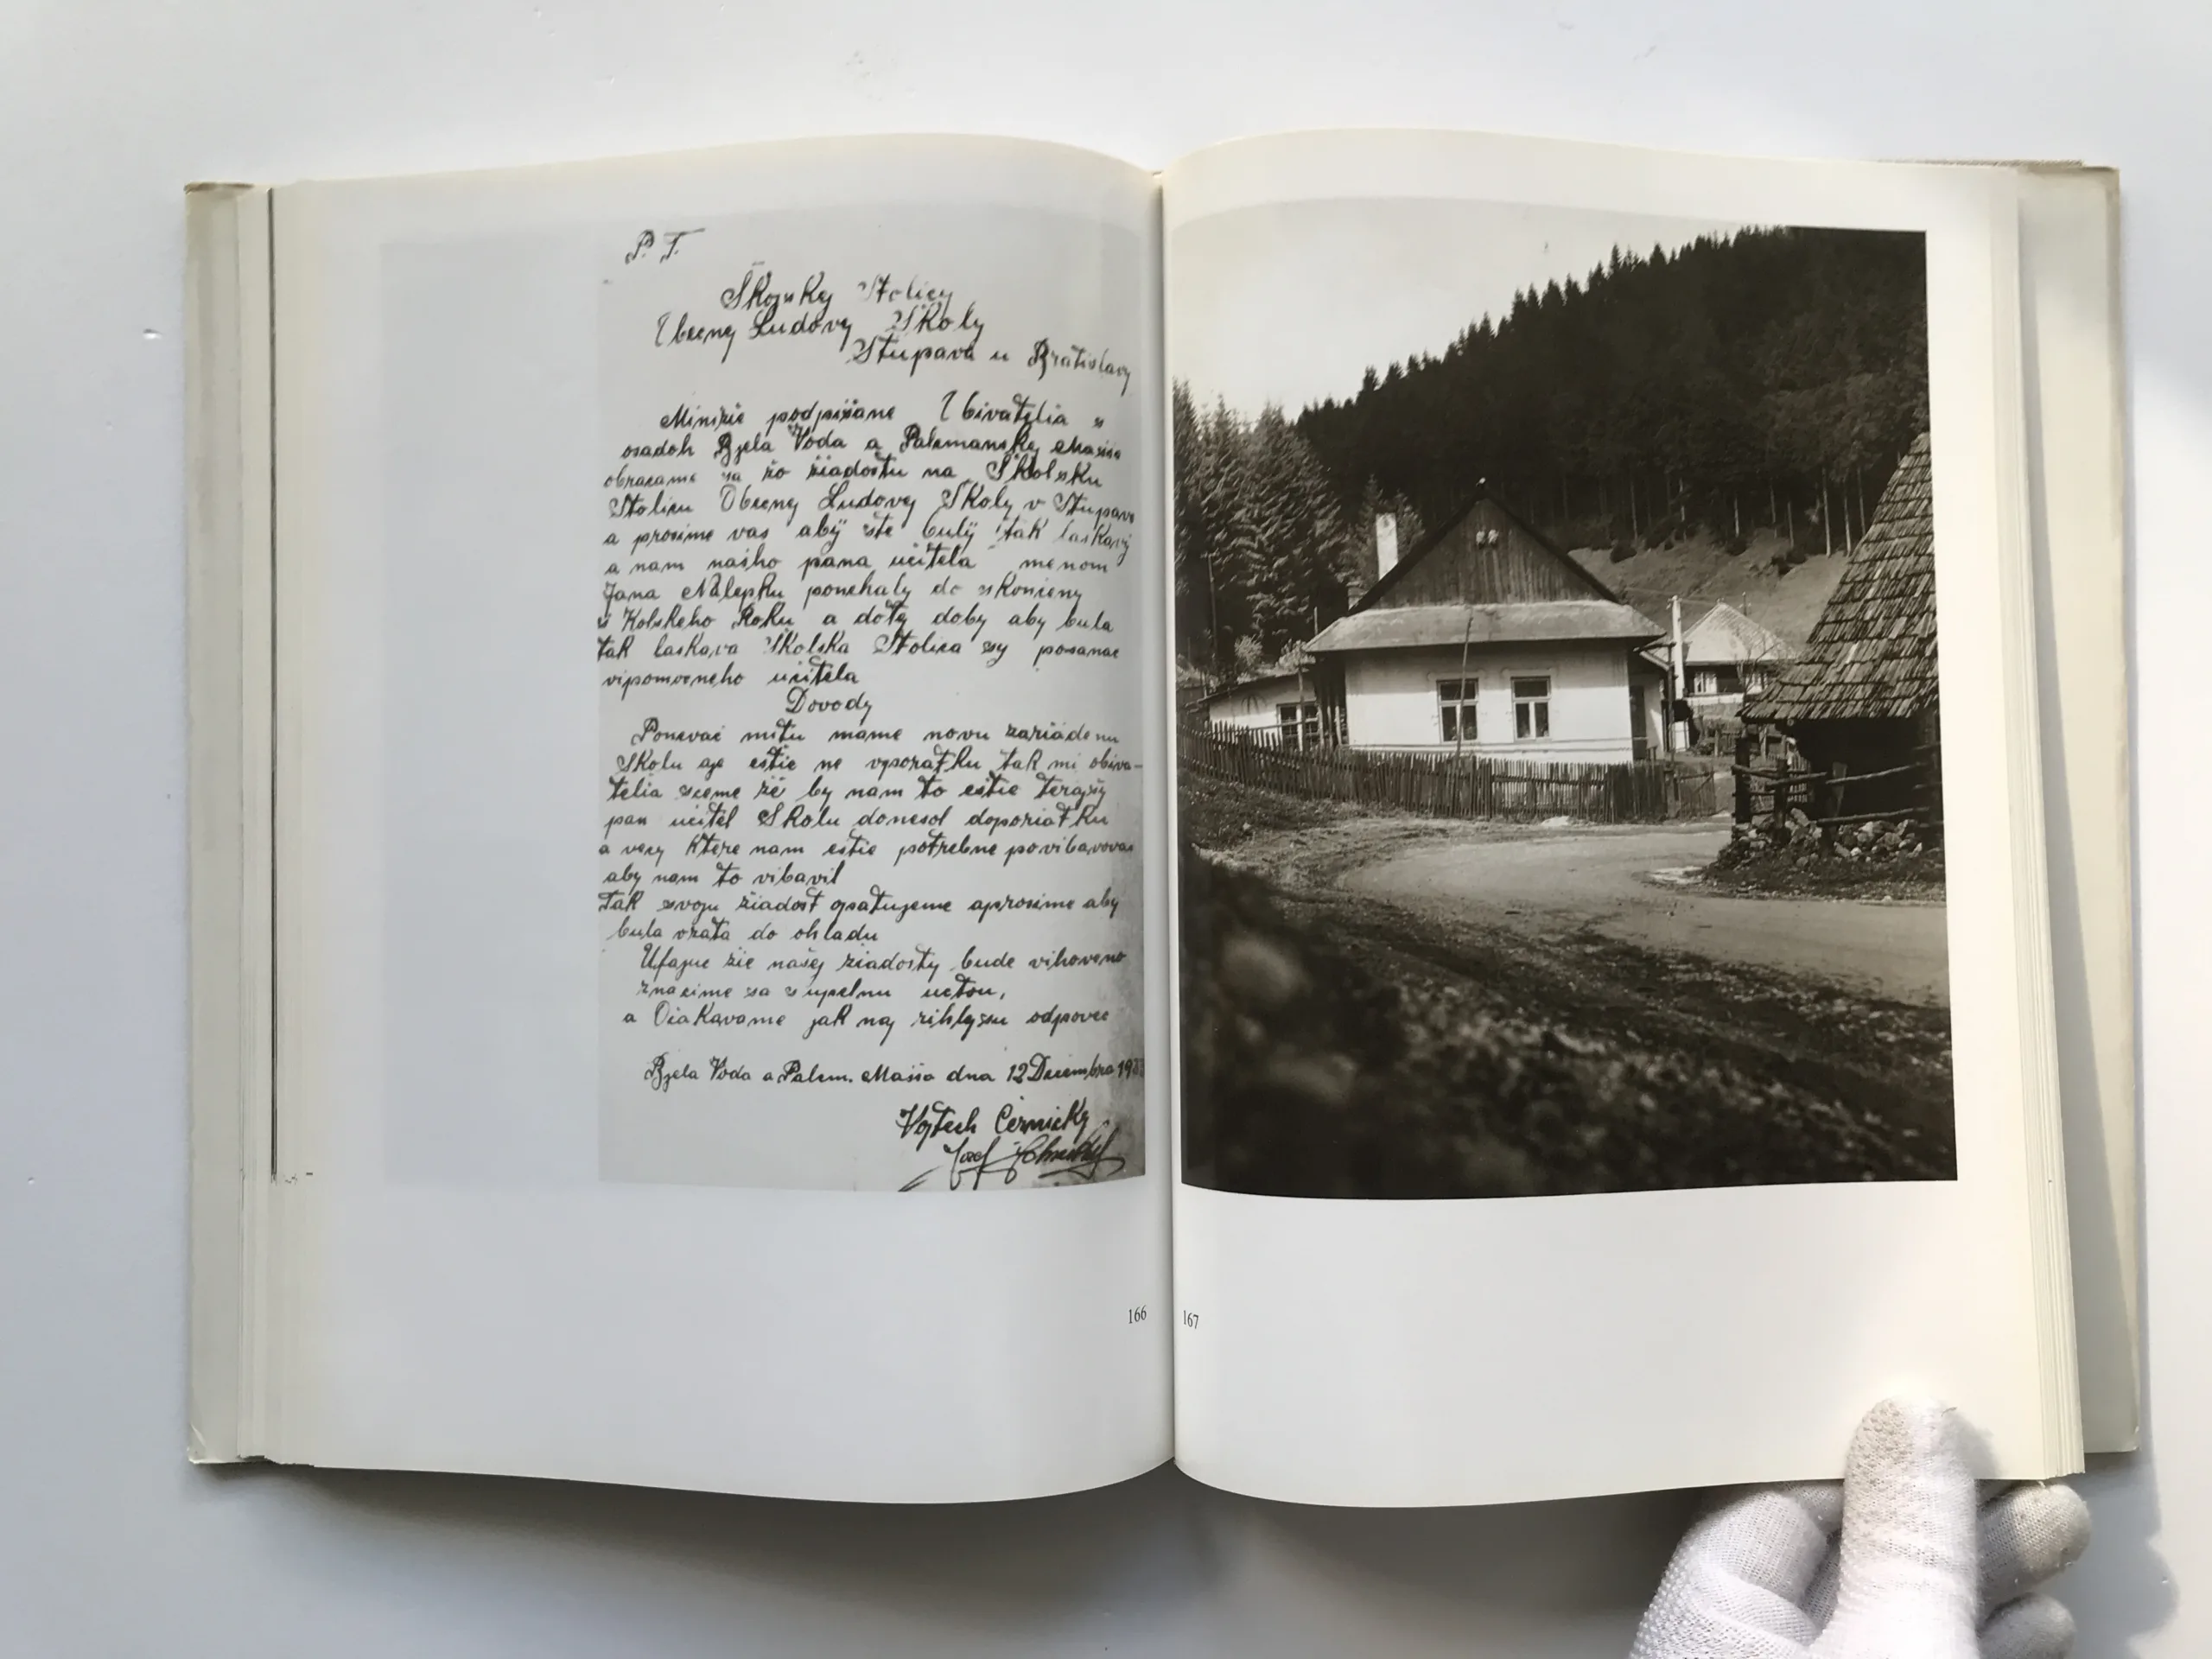 P. T.
Školskej Stolicy
Obecnej Ludovej Školy
Stupava u Bratislavy
Minižie podpišane Obivatelia s
osadoh Bjela Voda a Palemanskej Maša
obracame sa zo žiadostu na Školsku
Stolicu Obecnej Ludovej Školy v Stupave
a prosime vas aby ste buly tak laskavy
a nam našho pana učitela menom
Jana Nalepku ponehaly do skončeny
školskeho Roku a doty doby aby bula
tak laskava Školska Stolica sy posanac
vipomoceneho učitela
Dovody
Ponevač mitu mame novu zariadenu
Školu aje eštie ne vysporatku tak mi obiva-
telia sceme žie by nam to eštie terajšy
pan učitel Školu donesol doporiatku
a vecy ktere nam eštie potrebne povibavovac
aby nam to vibavil
tak svoju žiadost opatujeme aprosime aby
bula vzata do ohladu
Ufajuc žie našej žiadosty bude vihoveno
značime sa s upelnu uctou,
a Očakavame jak naj rihlyšu odpovec
Bjela Voda a Palem. Maša dna 12 Decembra 193
Vojtech Černicky
Jozef
166
167